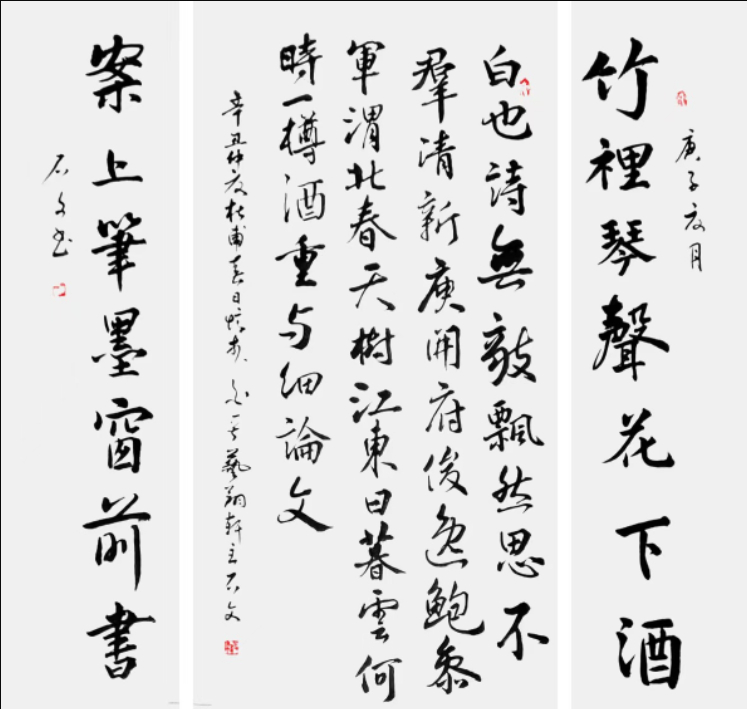 庚子夏月
竹裡琴聲花下酒
白也詩無敵飄然思不
羣清新庾開府俊逸鮑參
軍渭北春天樹江東日暮雲何
時一樽酒重与細論文
辛丑仲夏杜甫春日憶李白一首藝翔軒主石文
案上筆墨窗前書
石文书